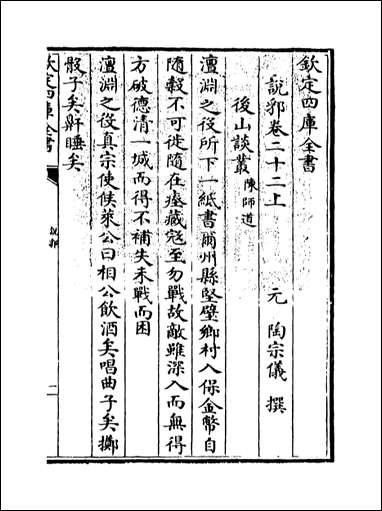 欽定四庫全書
說郛卷二十二上
元 陶宗儀 撰
後山談叢 陳師道
澶淵之役所下一紙書爾州縣堅壁鄉村入保金幣自
隨穀不可徙隨在瘞藏寇至勿戰故敵雖深入而無得
方破德清一城而得不補失未戰而困
澶淵之役真宗使候萊公曰相公飲酒矣唱曲子矣擲
骰子矣鼾睡矣
欽定四庫全書
說郛